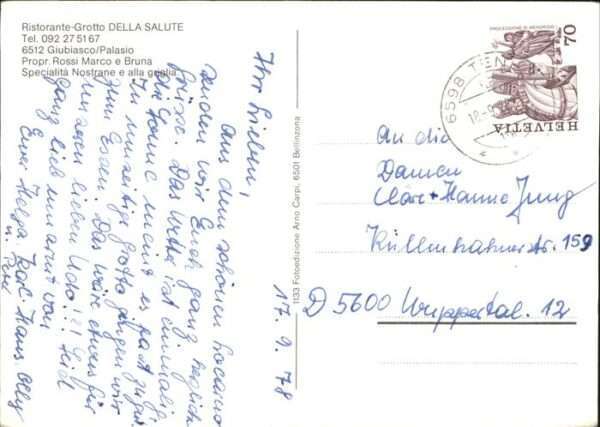 Ristorante-Grotto DELLA SALUTE
Tel. 092 27 51 67
6512 Giubiasco/Palasio
Propr. Rossi Marco e Bruna
Specialità Nostrane e alla griglia
Ihr Lieben,
aus dem schönen Locarno
senden wir Euch ganz herzliche
Grüsse. Das Wetter ist einmalig
die Sonne meint es fast zu gut.
In urige Grotto gingen wir
zum Essen. Das wäre etwas für
unseren lieben Udo!!! Seid
ganz lieb umarmt von
Eurer Helga, Karl, Hans, Olly
u.
17. 9. 78
1133 Fotoedizione Arno Carpi, 6501 Bellinzona
PROCESSIONE A MENDRISIO
70
HELVETIA
6598 TEN
18-9
An die
Damen
Cläre + Hanne Jung
Küllenhahnerstr. 159
D 5600 Wuppertal. 12